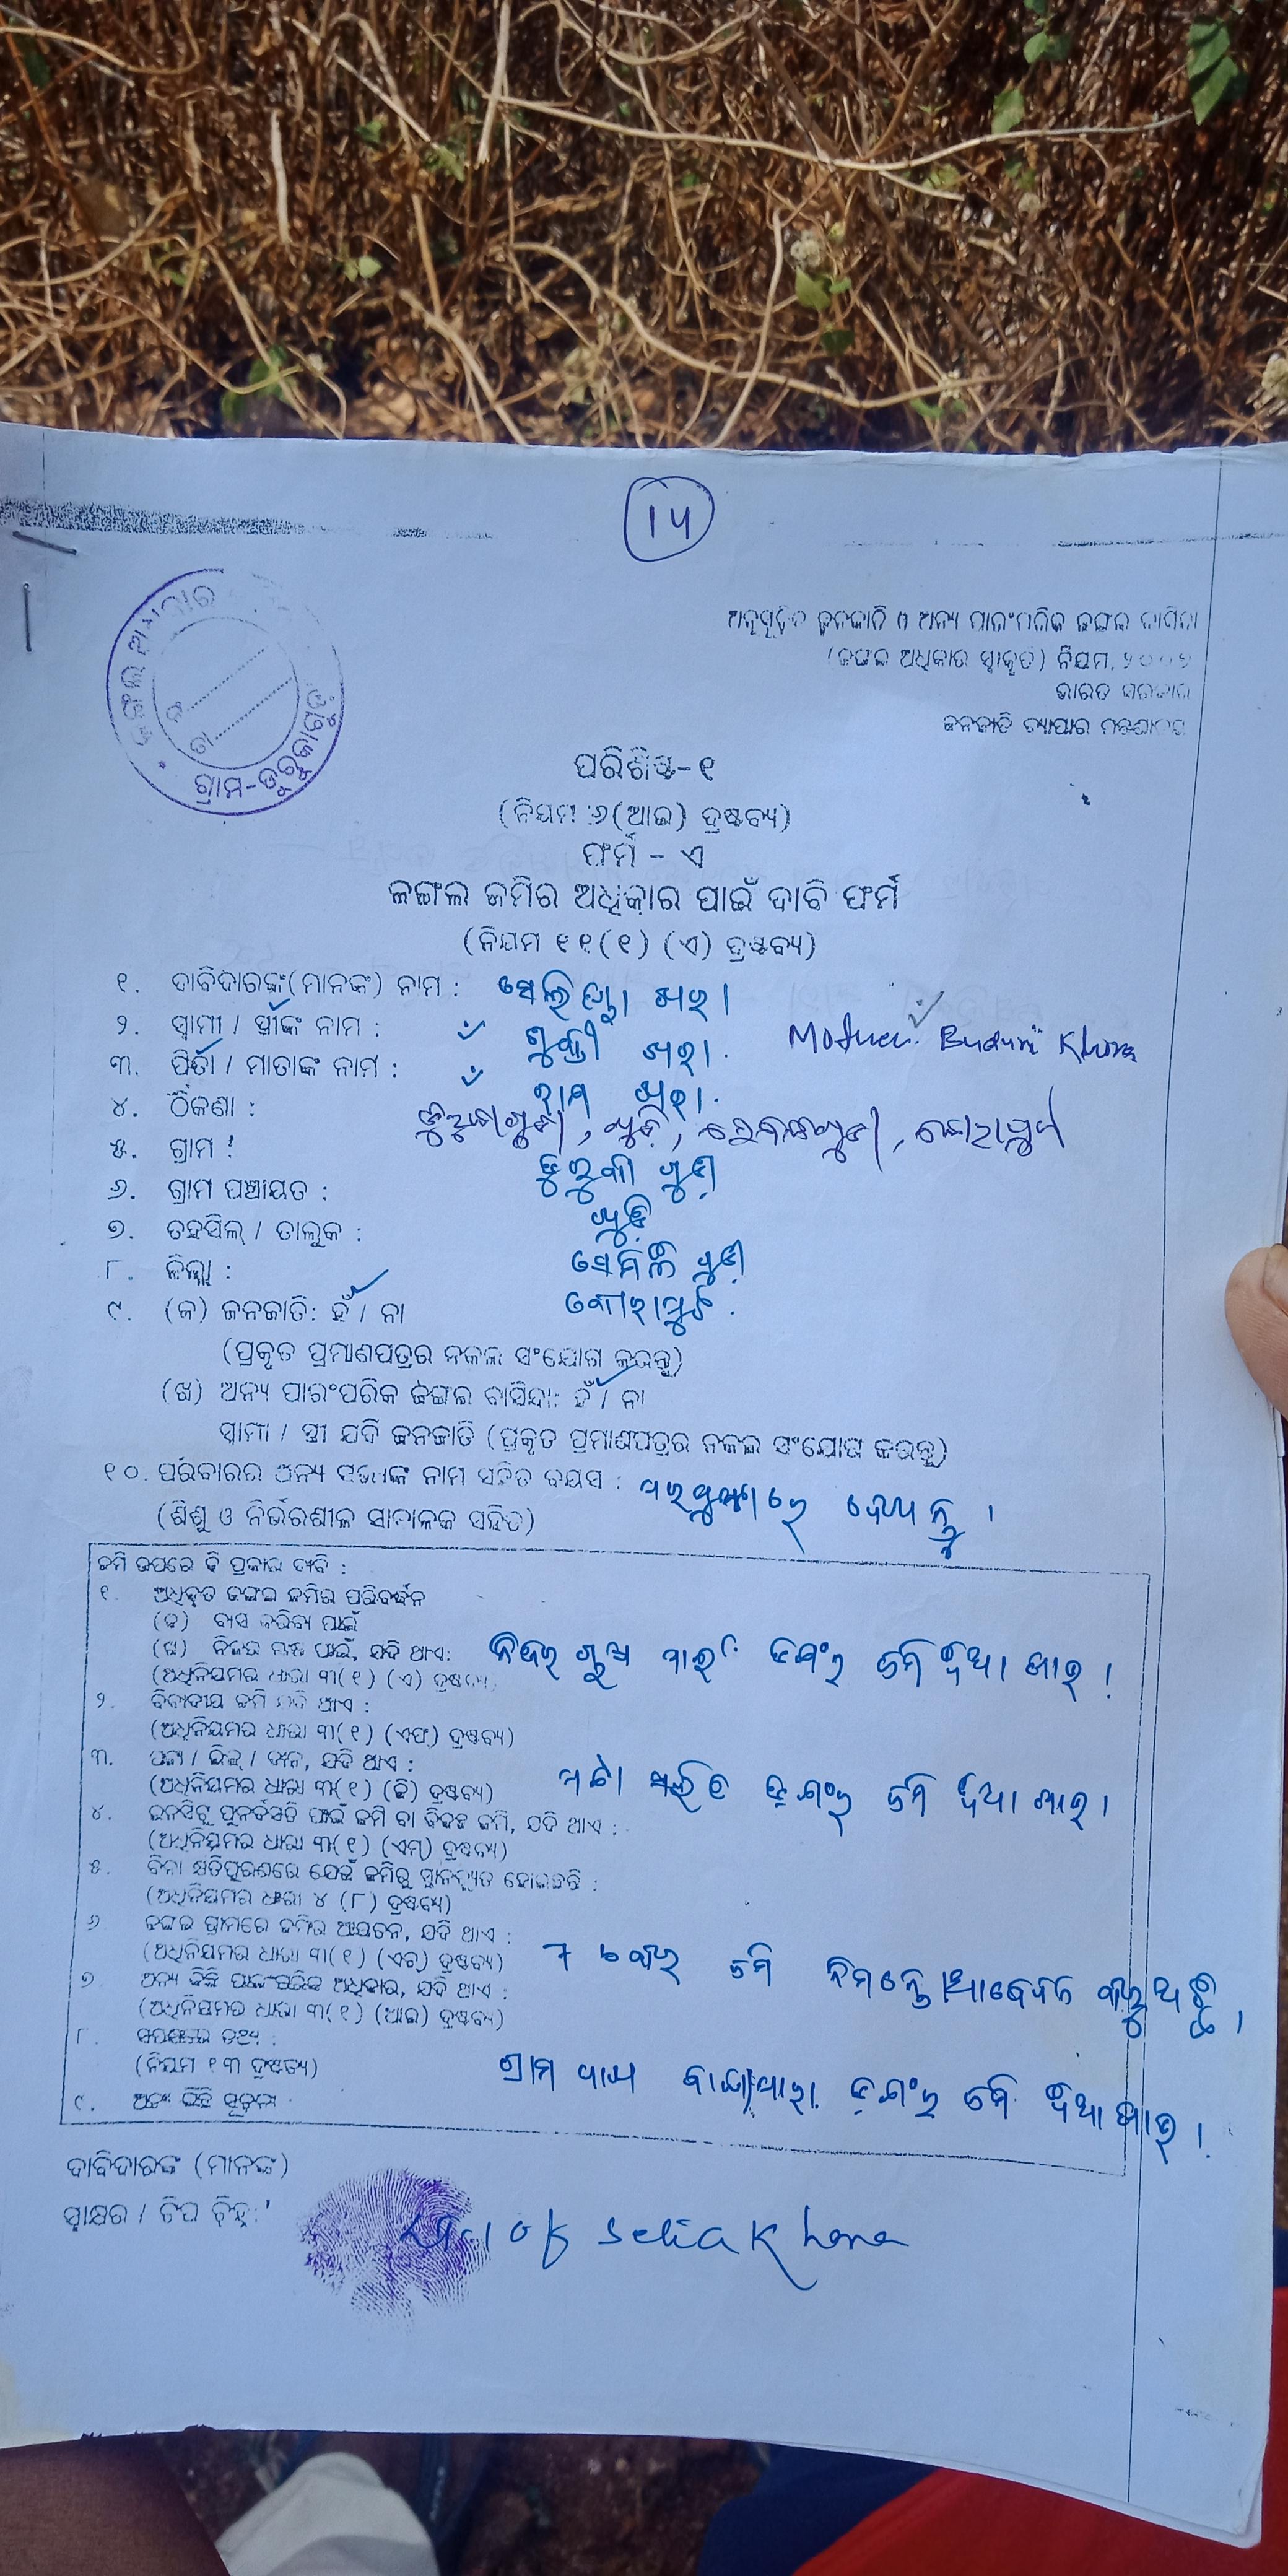 14
ଅନୁସୂଚିତ ଜନଜାତି ଓ ଅନ୍ୟ ପାରଂପରିକ ଜଙ୍ଗଲ ବାସିନ୍ଦା
(ଜଙ୍ଗଲ ଅଧିକାର ସ୍ୱୀକୃତି) ନିୟମ, ୨୦୦୭
ଭାରତ ସରକାର
ଜନଜାତି ବ୍ୟାପାର ମନ୍ତ୍ରଣାଳୟ
ଜଙ୍ଗଲ ଅଧିକାର
ନ
ତା
ଗ୍ରାମ-ତୁରୁକାଗୁଡ଼
ପରିଶିଷ୍ଟ-୧
(ନିୟମ ୬(ଆଇ) ଦ୍ରଷ୍ଟବ୍ୟ)
ଫର୍ମ - ଏ
ଜଙ୍ଗଲ ଜମିର ଅଧିକାର ପାଇଁ ଦାବି ଫର୍ମ
(ନିୟମ ୧୧(୧) (ଏ) ଦ୍ରଷ୍ଟବ୍ୟ)
୧. ଦାବିଦାରଙ୍କ(ମାନଙ୍କ) ନାମ : ସେଲିୟା ଖରା
୨. ସ୍ୱାମୀ / ସ୍ତ୍ରୀଙ୍କ ନାମ : ଖରା
Mother: Buduri Khora
୩. ପିତା / ମାତାଙ୍କ ନାମ : ଖରା
୪. ଠିକଣା :
୫. ଗ୍ରାମ :
୬. ଗ୍ରାମ ପଞ୍ଚାୟତ :
୭. ତହସିଲ୍ / ତାଲୁକ : ସେମିଳିଗୁଡ଼ା
୮. ଜିଲ୍ଲା : କୋରାପୁଟ
୯. (କ) ଜନଜାତି: ହଁ / ନା
(ପ୍ରକୃତ ପ୍ରମାଣପତ୍ରର ନକଲ ସଂଯୋଗ କରନ୍ତୁ)
(ଖ) ଅନ୍ୟ ପାରଂପରିକ ଜଙ୍ଗଲ ବାସିନ୍ଦା: ହଁ / ନା
ସ୍ୱାମୀ / ସ୍ତ୍ରୀ ଯଦି ଜନଜାତି (ପ୍ରକୃତ ପ୍ରମାଣପତ୍ରର ନକଲ ସଂଯୋଗ କରନ୍ତୁ)
୧୦. ପରିବାରର ଅନ୍ୟ ସଭ୍ୟଙ୍କ ନାମ ସହିତ ବୟସ : ପରପୃଷ୍ଠାରେ ଦେଖନ୍ତୁ ।
(ଶିଶୁ ଓ ନିର୍ଭରଶୀଳ ସାବାଳକ ସହିତ)
ଜମି ଉପରେ କି ପ୍ରକାର ଦାବି :
୧. ଅଧିକୃତ ଜଙ୍ଗଲ ଜମିର ପରିବର୍ଦ୍ଧନ
(କ) ବାସ କରିବା ପାଇଁ
(ଖ) ନିଜର ଚାଷ ପାଇଁ, ଯଦି ଥାଏ:
(ଅଧିନିୟମର ଧାରା ୩(୧) (ଏ) ଦ୍ରଷ୍ଟବ୍ୟ)
ଜମି ଦିଆ ଯାଉ ।
୨. ବିବାଦୀୟ ଜମି ଯଦି ଥାଏ :
(ଅଧିନିୟମର ଧାରା ୩(୧) (ଏଫ୍) ଦ୍ରଷ୍ଟବ୍ୟ)
୩. ପଟ୍ଟା / ଲିଜ୍ / ଦାନ, ଯଦି ଥାଏ :
(ଅଧିନିୟମର ଧାରା ୩(୧) (ଜି) ଦ୍ରଷ୍ଟବ୍ୟ)
ଜମି ଦିଆ ଯାଉ ।
୪. ଇନସିଟୁ ପୁନର୍ବସତି ପାଇଁ ଜମି ବା ବିକଳ୍ପ ଜମି, ଯଦି ଥାଏ :
(ଅଧିନିୟମର ଧାରା ୩(୧) (ଏମ୍) ଦ୍ରଷ୍ଟବ୍ୟ)
୫. ବିନା କ୍ଷତିପୂରଣରେ ଯେଉଁ ଜମିରୁ ସ୍ଥାନଚ୍ୟୁତ ହୋଇଛନ୍ତି :
(ଅଧିନିୟମର ଧାରା ୪ (୮) ଦ୍ରଷ୍ଟବ୍ୟ)
୬. ଜଙ୍ଗଲ ଗ୍ରାମରେ ଜମିର ଆୟତନ, ଯଦି ଥାଏ :
(ଅଧିନିୟମର ଧାରା ୩(୧) (ଏଚ୍) ଦ୍ରଷ୍ଟବ୍ୟ)
ଜମି ନିମନ୍ତେ ଆବେଦନ କରୁଅଛି ।
୭. ଅନ୍ୟ କିଛି ପାରଂପରିକ ଅଧିକାର, ଯଦି ଥାଏ :
(ଅଧିନିୟମର ଧାରା ୩(୧) (ଆଇ) ଦ୍ରଷ୍ଟବ୍ୟ)
୮. ସପକ୍ଷରେ ତଥ୍ୟ :
(ନିୟମ ୧୩ ଦ୍ରଷ୍ଟବ୍ୟ)
ଗ୍ରାମ ପାଖ ଜମି ଦିଆ ଯାଉ ।
୯. ଅନ୍ୟ କିଛି ସୂଚନା
ଦାବିଦାରଙ୍କ (ମାନଙ୍କ)
ସ୍ୱାକ୍ଷର / ଟିପ ଚିହ୍ନ :
of Selia Khora